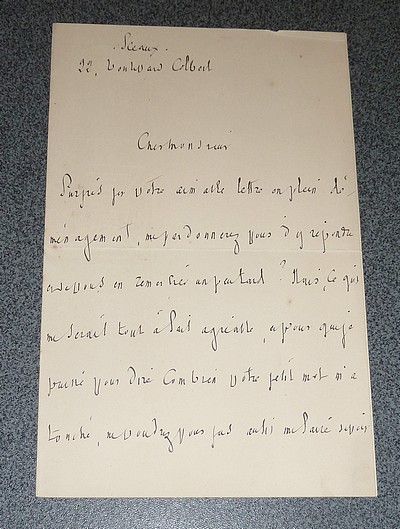 Sceaux.
22, boulevard Colbert
Cher monsieur
Surpris par votre aimable lettre en plein dé-
ménagement, me pardonnerez vous d'y répondre
et vous en remercier un peu tard ? Mais, ce qui
me serait tout à fait agréable, pour que je
puisse vous dire combien votre petit mot m'a
touché, ne voudrez vous pas aussi me faire savoir